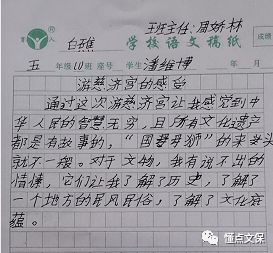 班主任：周娇林
育人
白礁 学校语文稿纸
成绩
五 年级10班 座号 学生 潘维博 年 月
游慈济宫的感受
通过这次游慈济宫让我感觉到中
华人民的智慧无穷，且所有文化遗产
都是有故事的，“国母狮”的来头
就不一般。对于文物，我有说不出的
情愫，它们让我了解了历史，了解了
一个地方的民风民俗，了解了文化底
蕴。
懂点文保